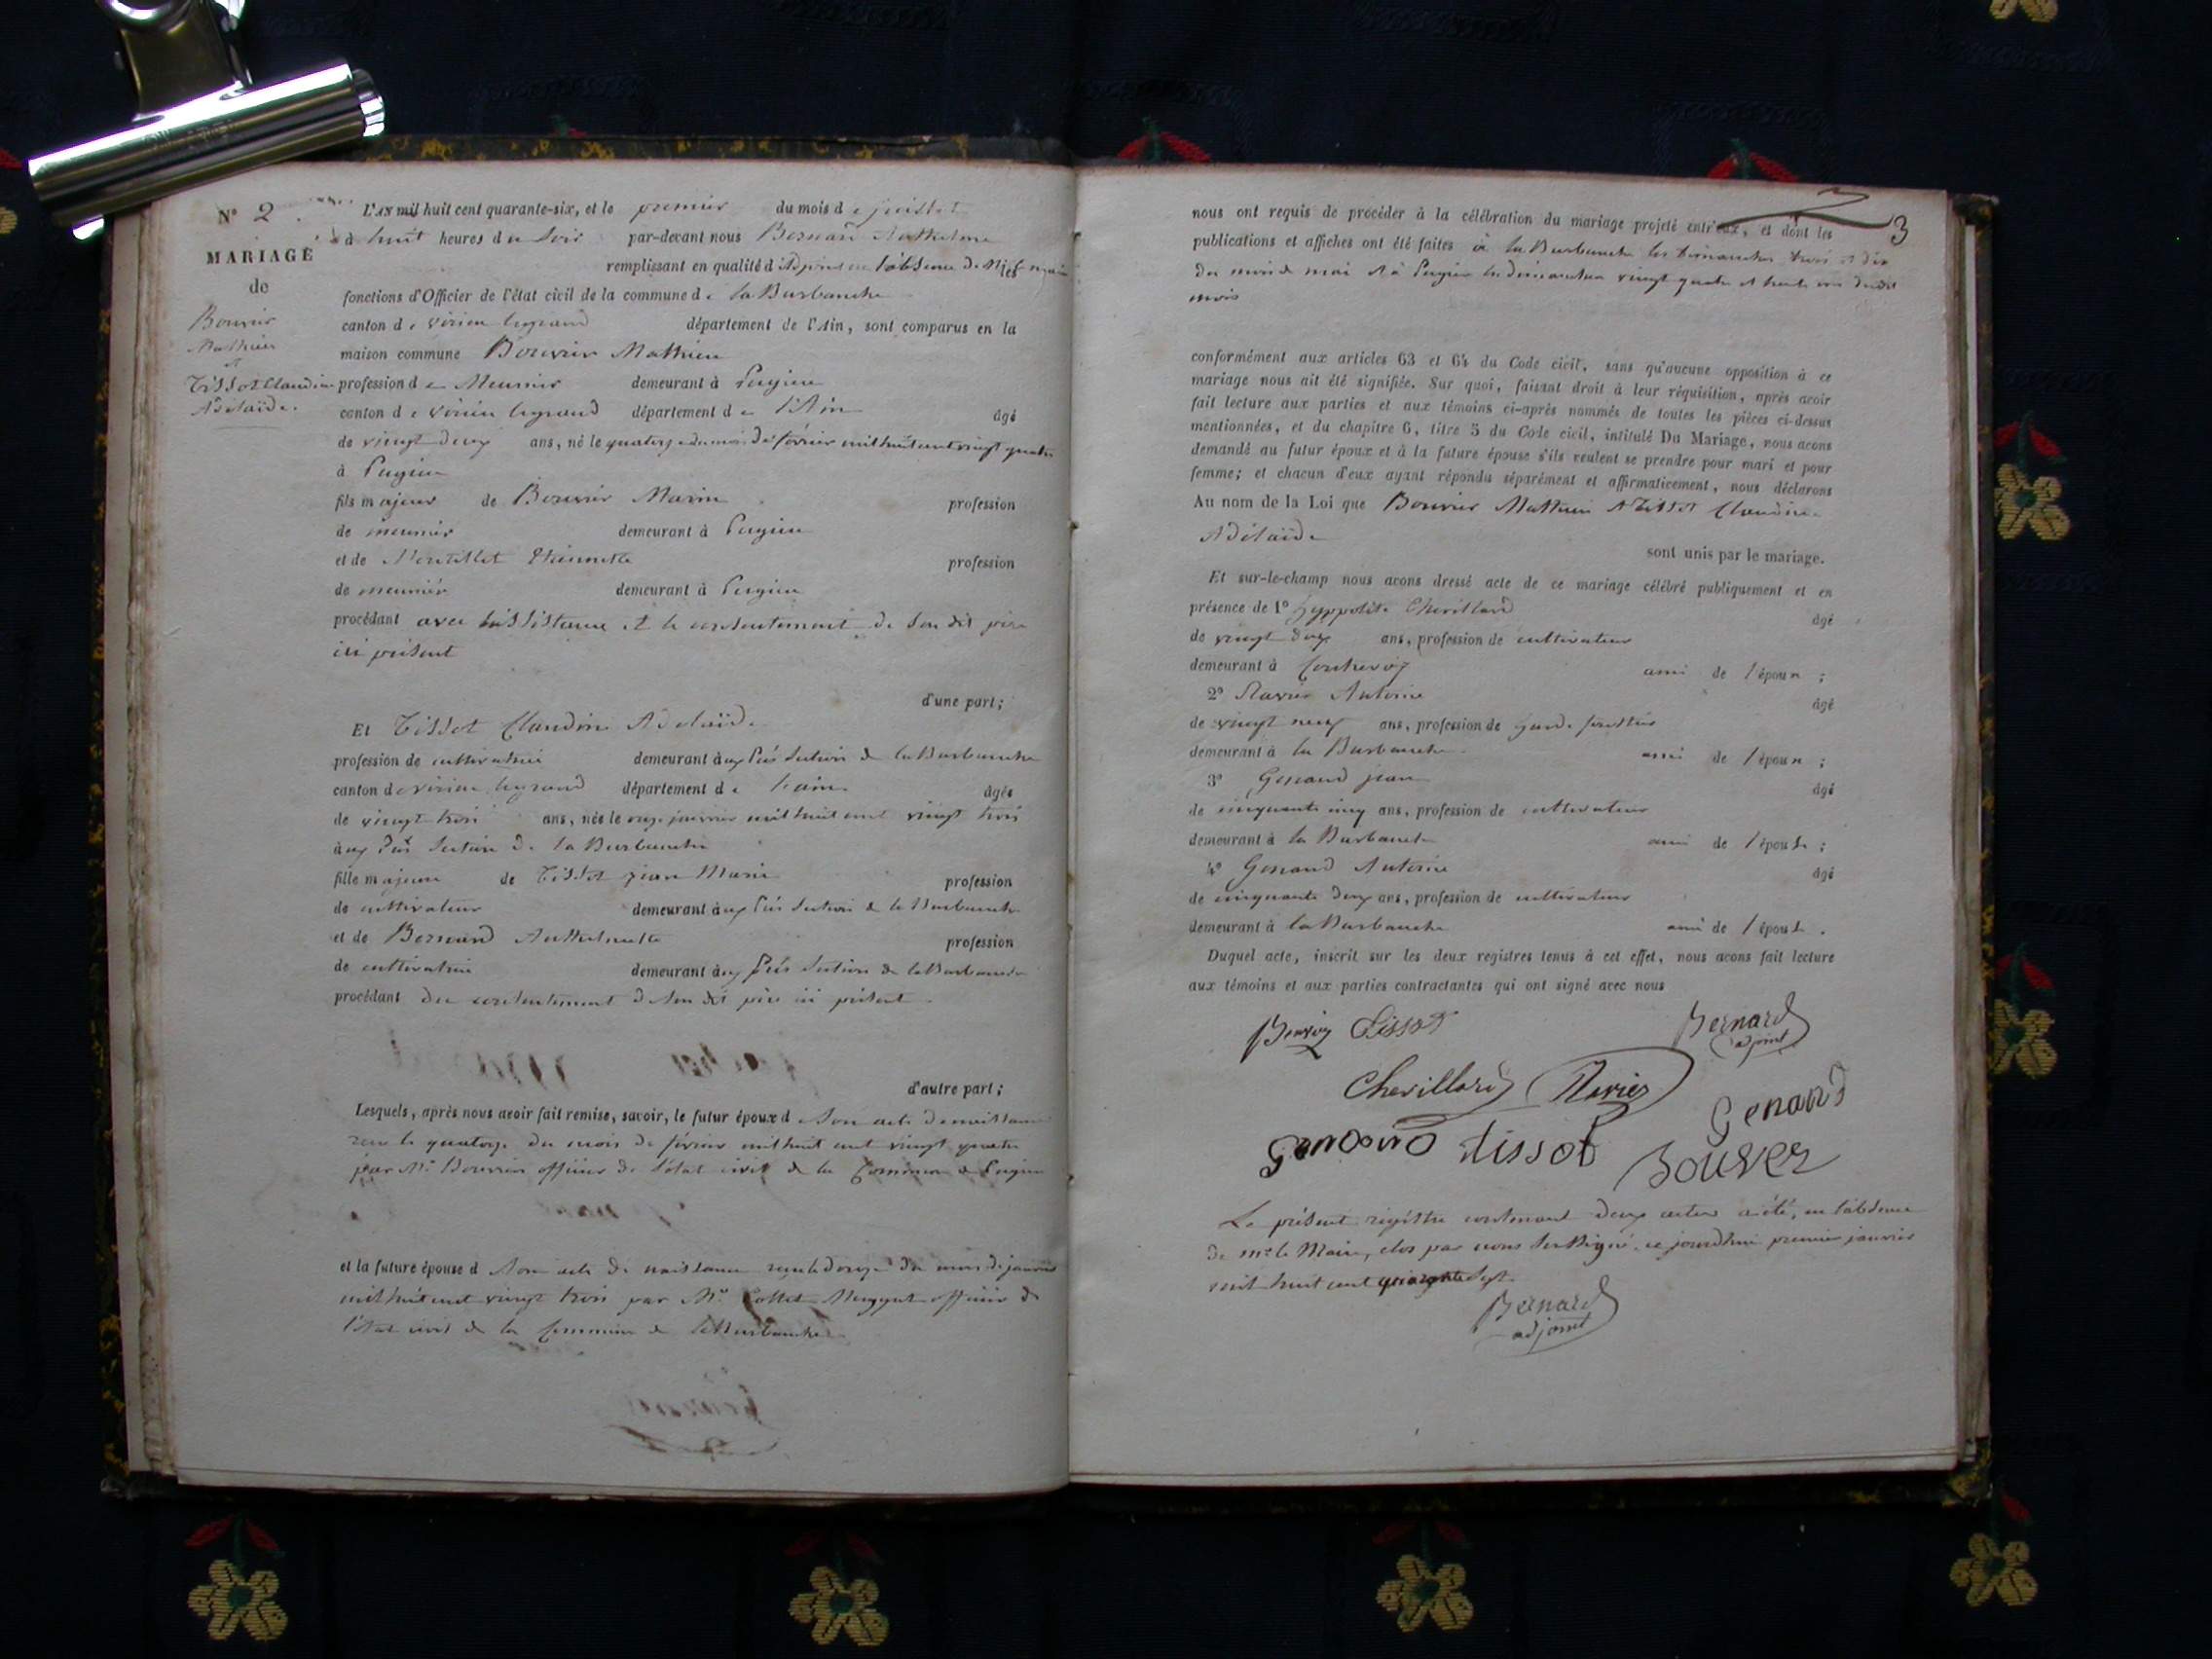 N° 2.
MARIAGE
de
Bouvier
Mathieu
et
Tissot Claudine
Adélaïde.
L'AN mil huit cent quarante-six, et le premier du mois de juillet
à huit heures du soir par-devant nous Bernard Anthelme
remplissant en qualité d'Adjoint en l'absence de Mr le maire
fonctions d'Officier de l'état civil de la commune de la Burbanche
canton de virieu legrand département de l'Ain, sont comparus en la
maison commune Bouvier Mathieu
profession de Meunier demeurant à Pugieu
canton de virieu legrand département de l'Ain âgé
de vingt deux ans, né le quatorze du mois de février mil huit cent vingt quatre
à Pugieu
fils majeur de Bouvier Marin profession
de meunier demeurant à Pugieu
et de Etiennette profession
de meunier demeurant à Pugieu
procédant avec l'assistance et le consentement de son dit père
ici présent
d'une part;
Et Tissot Claudine Adélaïde
profession de cultivatrice demeurant aux Section de la Burbanche
canton de virieu legrand département de l'ain âgée
de vingt trois ans, née le onze janvier mil huit cent vingt trois
aux Section de la Burbanche
fille majeure de Tissot jean Marie profession
de cultivateur demeurant aux Section de la Burbanche
et de Bernard Anthelmette profession
de cultivatrice demeurant aux Section de la Burbanche
procédant du consentement de son dit père ici présent
d'autre part;
Lesquels, après nous avoir fait remise, savoir, le futur époux de son acte de naissance
reçu le quatorze du mois de février mil huit cent vingt quatre
par Mr Bouvier officier de l'état civil de la Commune de Pugieu
et la future épouse d son acte de naissance reçu le douze du mois de janvier
mil huit cent vingt trois par Mr Collet officier de
l'état civil de la Commune de la Burbanche
3
nous ont requis de procéder à la célébration du mariage projeté entr'eux, et dont les
publications et affiches ont été faites à la Burbanche les dimanches trois et dix
du mois de mai et à Pugieu les dimanches vingt quatre et trente un dudit
mois
conformément aux articles 63 et 64 du Code civil, sans qu'aucune opposition à ce
mariage nous ait été signifiée. Sur quoi, faisant droit à leur réquisition, après avoir
fait lecture aux parties et aux témoins ci-après nommés de toutes les pièces ci-dessus
mentionnées, et du chapitre 6, titre 5 du Code civil, intitulé Du Mariage, nous avons
demandé au futur époux et à la future épouse s'ils veulent se prendre pour mari et pour
femme; et chacun d'eux ayant répondu séparément et affirmativement, nous déclarons
Au nom de la Loi que Bouvier Mathieu et Tissot Claudine
Adélaïde
sont unis par le mariage.
Et sur-le-champ nous avons dressé acte de ce mariage célébré publiquement et en
présence de 1° hyppolite Chevillard âgé
de vingt deux ans, profession de cultivateur
demeurant à ami de l'époux ;
2° Ravier Antoine âgé
de vingt neuf ans, profession de garde forestier
demeurant à la Burbanche ami de l'époux ;
3° Genand jean âgé
de cinquante cinq ans, profession de cultivateur
demeurant à la Burbanche ami de l'épouse ;
4° Genand Antoine âgé
de cinquante deux ans, profession de cultivateur
demeurant à la Burbanche ami de l'épouse.
Duquel acte, inscrit sur les deux registres tenus à cet effet, nous avons fait lecture
aux témoins et aux parties contractantes qui ont signé avec nous
Tissot Bernard
adjoint
Chevillard Ravier Genand
Genand tissot Bouvier
Le présent régistre contenant deux actes a été, en l'absence
de mr le Maire, clos par nous Soussigné, ce jourdhui premier janvier
mil huit cent quarante Sept.
Bernard
adjoint